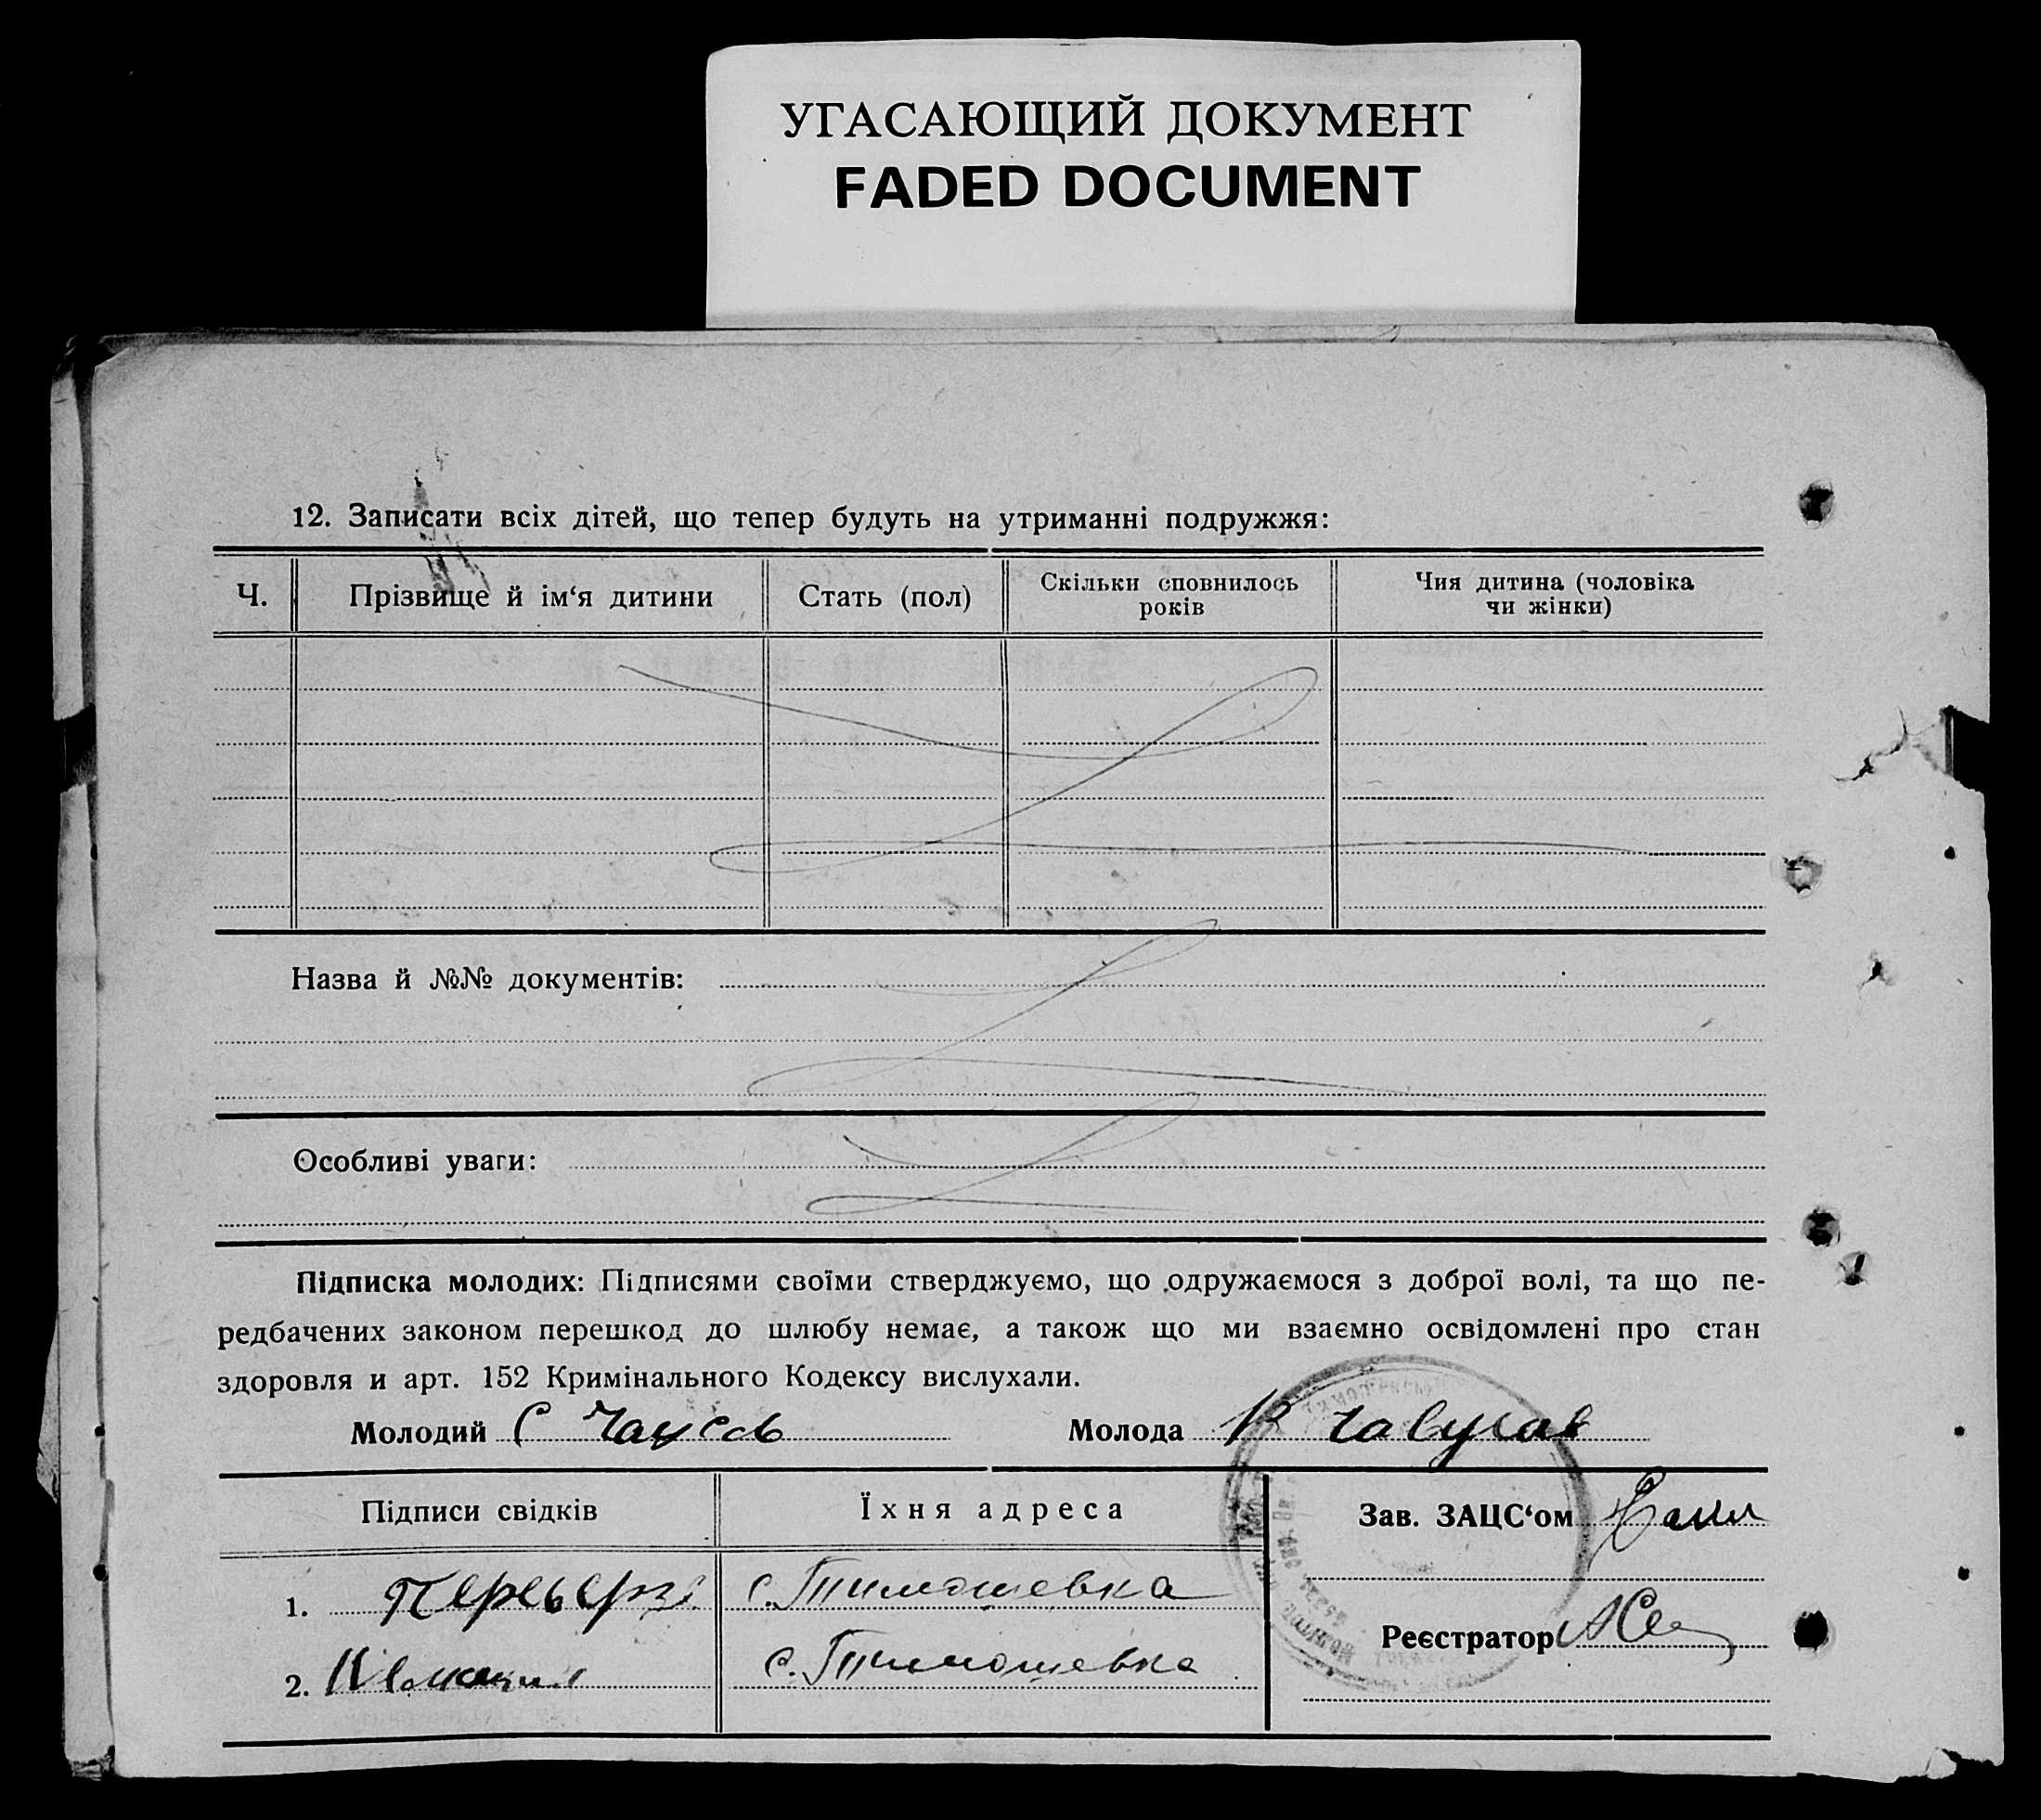 УГАСАЮЩИЙ ДОКУМЕНТ
FADED DOCUMENT
12. Записати всіх дітей, що тепер будуть на утриманні подружжя:
Ч. Прізвище й ім‘я дитини Стать (пол) Скільки сповнилось років Чия дитина (чоловіка чи жінки)
Назва й №№ документів:
Особливі уваги:
Підписка молодих: Підписями своїми стверджуємо, що одружаємося з доброї волі, та що пе-
редбачених законом перешкод до шлюбу немає, а також що ми взаємно освідомлені про стан
здоровля и арт. 152 Кримінального Кодексу вислухали.
Молодий С Молода
Підписи свідків Їхня адреса Зав. ЗАЦС‘ом
1. с. Тимошевка
Реєстратор
2. с. Тимошевка